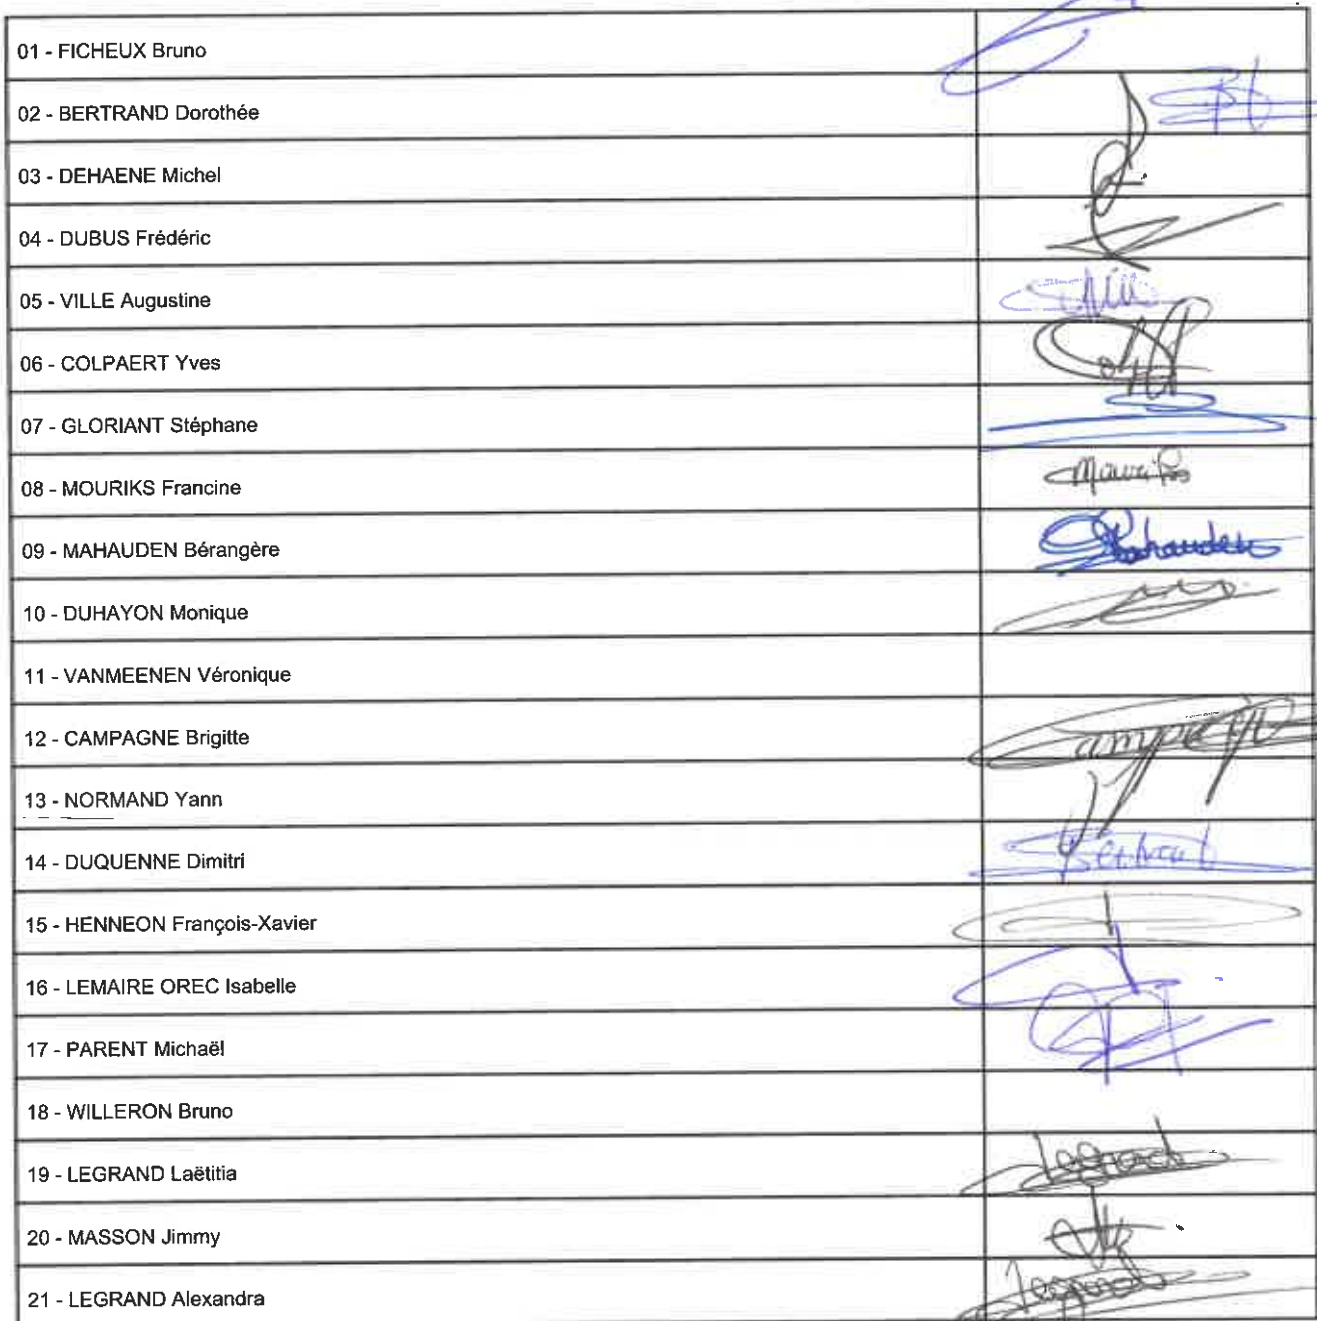 01 - FICHEUX Bruno
02 - BERTRAND Dorothée
03 - DEHAENE Michel
04 - DUBUS Frédéric
05 - VILLE Augustine
06 - COLPAERT Yves
07 - GLORIANT Stéphane
08 - MOURIKS Francine
09 - MAHAUDEN Bérangère
Mahauden
10 - DUHAYON Monique
11 - VANMEENEN Véronique
12 - CAMPAGNE Brigitte
13 - NORMAND Yann
14 - DUQUENNE Dimitri
15 - HENNEON François-Xavier
16 - LEMAIRE OREC Isabelle
17 - PARENT Michaël
18 - WILLERON Bruno
19 - LEGRAND Laëtitia
Legrand
20 - MASSON Jimmy
21 - LEGRAND Alexandra
Legrand